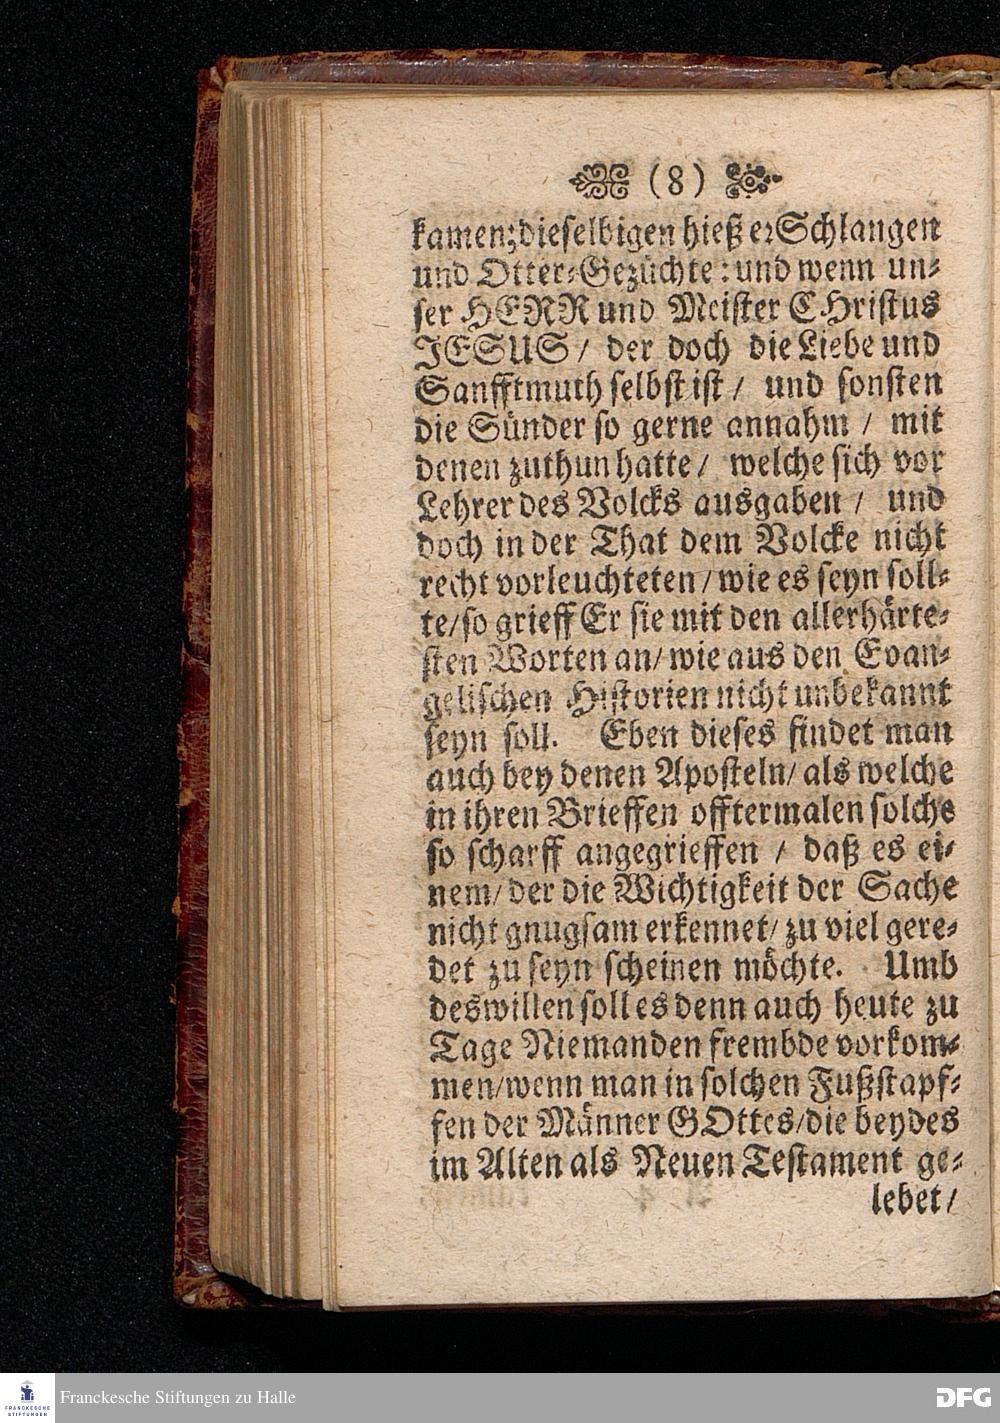 (8)
kamen; dieselbigen hieß er Schlangen
und Otter-Gezüchte: und wenn un-
ser HERR und Meister CHristus
JESUS / der doch die Liebe und
Sanfftmuth selbst ist / und sonsten
die Sünder so gerne annahm / mit
denen zuthun hatte / welche sich vor
Lehrer des Volcks ausgaben / und
doch in der That dem Volcke nicht
recht vorleuchteten / wie es seyn soll-
te / so grieff Er sie mit den allerhärte-
sten Worten an / wie aus den Evan-
gelischen Historien nicht unbekannt
seyn soll. Eben dieses findet man
auch bey denen Aposteln / als welche
in ihren Brieffen offtermalen solche
so scharff angegrieffen / daß es ei-
nem / der die Wichtigkeit der Sache
nicht gnugsam erkennet / zu viel gere-
det zu seyn scheinen möchte. Umb
deswillen soll es denn auch heute zu
Tage Niemanden frembde vorkom-
men / wenn man in solchen Fußstapf-
fen der Männer GOttes / die beydes
im Alten als Neuen Testament ge-
lebet /
FRANCKESCHE STIFTUNGEN
Franckesche Stiftungen zu Halle
DFG